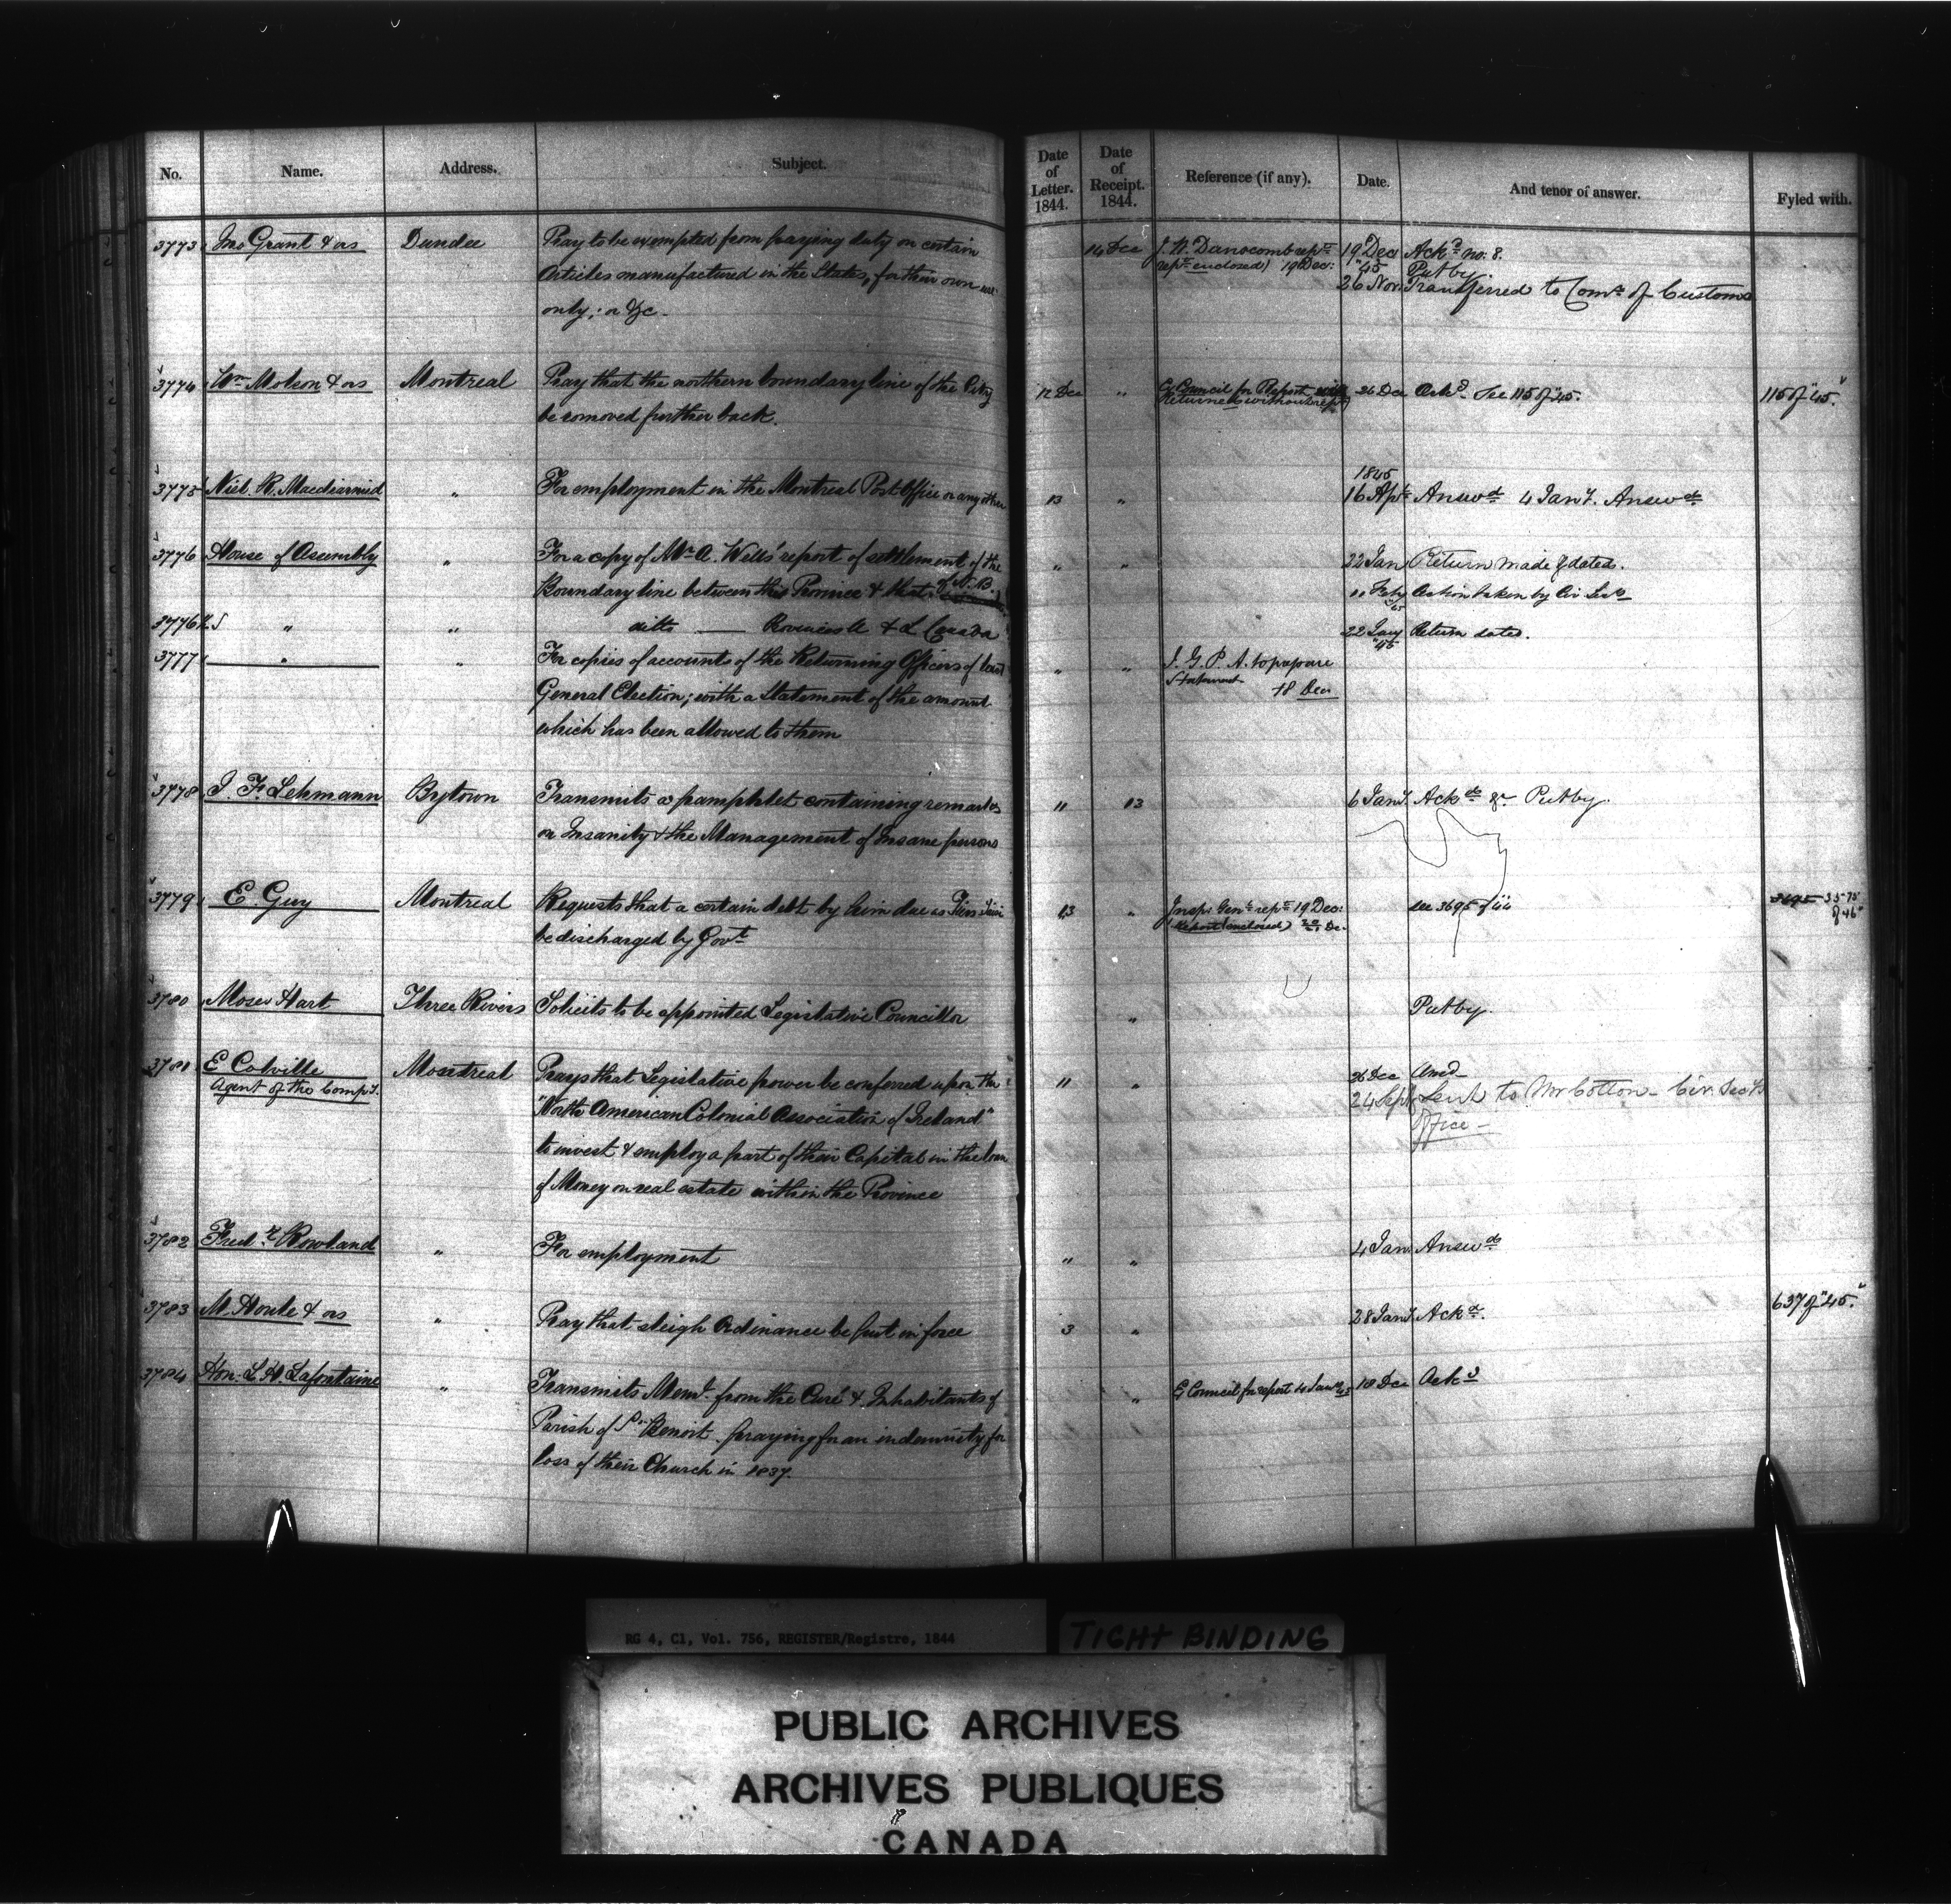 No. Name. Address. Subject. Date of Letter. 1844. Date of Receipt. 1844. Reference (if any). Date. And tenor of answer. Fyled with.
3773 Jno Grant & ors Dundee Pray to be exempted from paying duty on certain 14 Dec 19 Dec Ackd no: 8.
Articles manufactured in the States, for their own use rept enclosed) 19 Dec: "45 Put by.
only; &c. 26 Nov. Transferred to Comr of Customs
3774 Wm Molson & ors Montreal Pray that the northern boundary line of the City 12 Dec " E Council for Report 26 Dec Ackd See 115 of "45. 115 of "45."
be removed further back. Returned without rept
1845
3775 Niel R. Macdiarmid " For employment in the Montreal Post Office or any other 13 " 16 Apl Answd 4 Jany. Answd
3776 House of Assembly " For a copy of Mr A. Wells' report of settlement of the " " 22 Jan Return made & dated.
Boundary line between this Province & that of N.B. Feby Action taken by Civ Secy
3776½ " " ditto — Provinces U & L Canada 22 Jany Return dated.
"45
3777 " " For copies of accounts of the Returning Officers of last " " I. G. P. A. to prepare
General Election; with a Statement of the amount Statement 18 Dec
which has been allowed to them
3778 I. F. Lehmann Bytown Transmits a pamphlet containing remarks 11 13 6 Jany. Ackd & Put by.
on Insanity & the Management of Insane persons
3779 E. Guy Montreal Requests that a certain debt by him due 13 " Insp: Genl rept 19 Dec: see 3695 of "44 3695 3575
be discharged by Govt Report enclosed) Dec. of 46"
3780 Moses Hart Three Rivers Solicits to be appointed Legislative Councillor " Put by.
3781 E Colville Montreal Prays that Legislative power be conferred upon the 11 " 26 Dec Answd
Agent of the Compy. "North American Colonial Association of Ireland" 24 Sept Sent to Mr Cotton – Civ. Secy's
to invest & employ a part of their Capital in the loan Office –
of Money on real estate within the Province
3782 Fredk Rowland " For employment " " 4 Jan. Answd
3783 M. Houle & ors " Pray that sleigh Ordinance be put in force 3 " 28 Jany. Ackd. 637 of "45."
3784 Hon. L. H. Lafontaine " Transmits Meml. from the Curé & Inhabitants of " E Council for report 4 Jany 45 18 Dec Ackd
Parish of St Benoit praying for an indemnity for
loss of their Church in 1837.
RG 4, C1, Vol. 756, REGISTER/Registre, 1844
TIGHT BINDING
PUBLIC ARCHIVES
ARCHIVES PUBLIQUES
CANADA